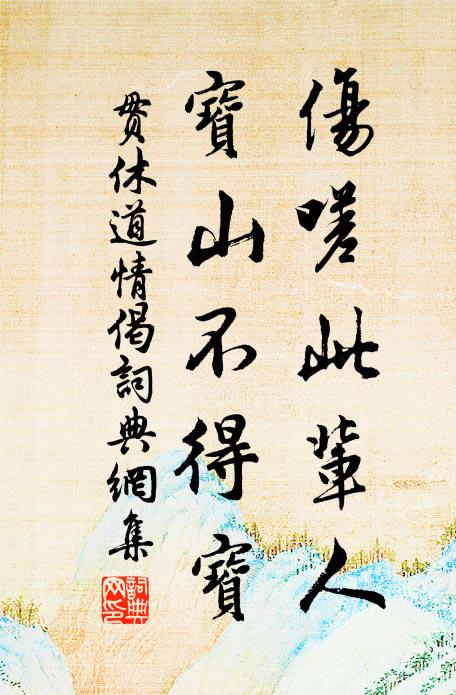 傷嗟此輩人
寶山不得寶
貫休道情偈詞典網集
詞典